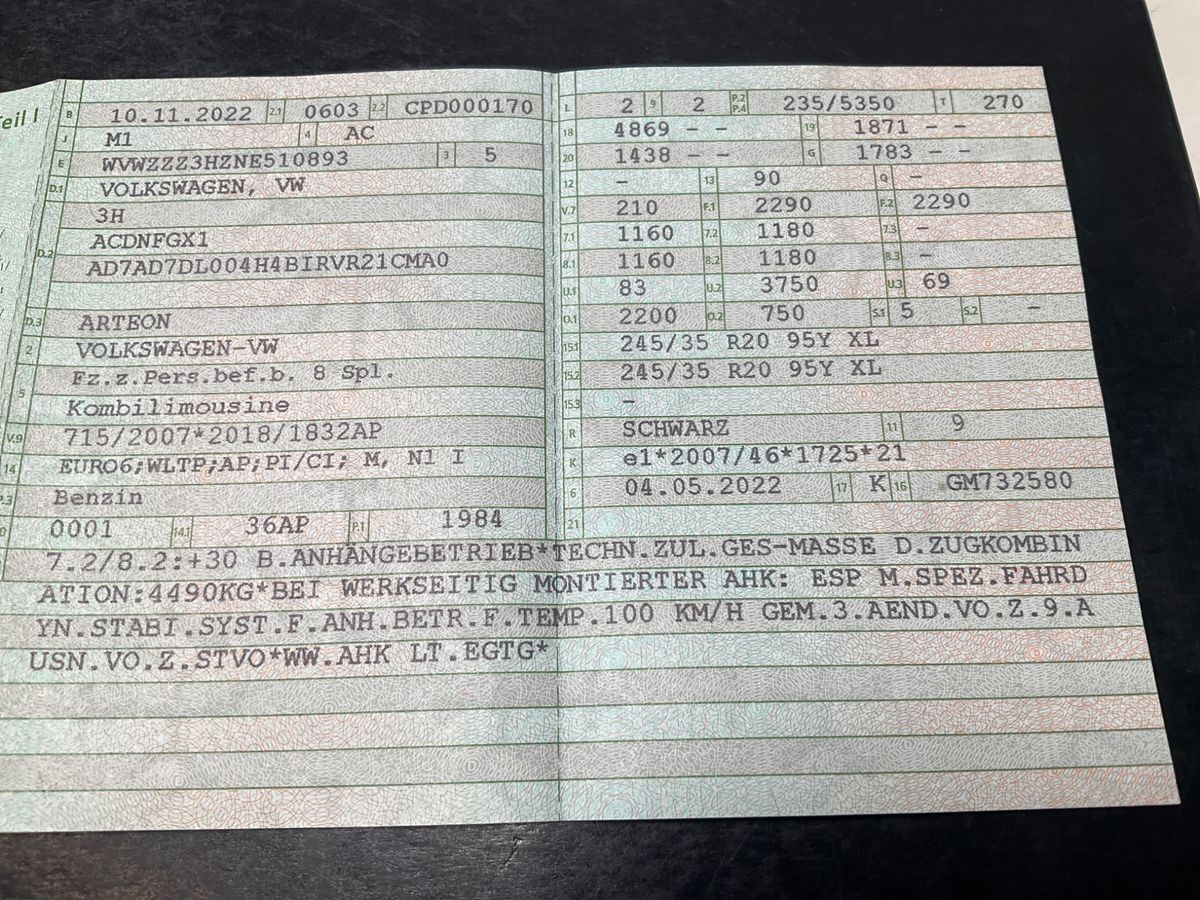 Teil I
B 10.11.2022 2.1 0603 2.2 CPD000170
J M1 4 AC
E WVWZZZ3HZNE510893 3 5
D.1 VOLKSWAGEN, VW
3H
D.2 ACDNFGX1
AD7AD7DL004H4BIRVR21CMA0
D.3 ARTEON
2 VOLKSWAGEN-VW
Fz.z.Pers.bef.b. 8 Spl.
5 Kombilimousine
V.9 715/2007*2018/1832AP
14 EURO6;WLTP;AP;PI/CI; M, N1 I
P.3 Benzin
0001 14.1 36AP P.1 1984
L 2 9 2 P.2 P.4 235/5350 T 270
18 4869 - - 19 1871 - -
20 1438 - - G 1783 - -
12 - 13 90 Q -
V.7 210 F.1 2290 F.2 2290
7.1 1160 7.2 1180 7.3 -
8.1 1160 8.2 1180 8.3 -
U.1 83 U.2 3750 U.3 69
O.1 2200 O.2 750 S.1 5 S.2 -
15.1 245/35 R20 95Y XL
15.2 245/35 R20 95Y XL
15.3 -
R SCHWARZ 11 9
K e1*2007/46*1725*21
6 04.05.2022 17 K 16 GM732580
21
7.2/8.2:+30 B.ANHÄNGEBETRIEB*TECHN.ZUL.GES-MASSE D.ZUGKOMBIN
ATION:4490KG*BEI WERKSEITIG MONTIERTER AHK: ESP M.SPEZ.FAHRD
YN.STABI.SYST.F.ANH.BETR.F.TEMP.100 KM/H GEM.3.AEND.VO.Z.9.A
USN.VO.Z.STVO*WW.AHK LT.EGTG*